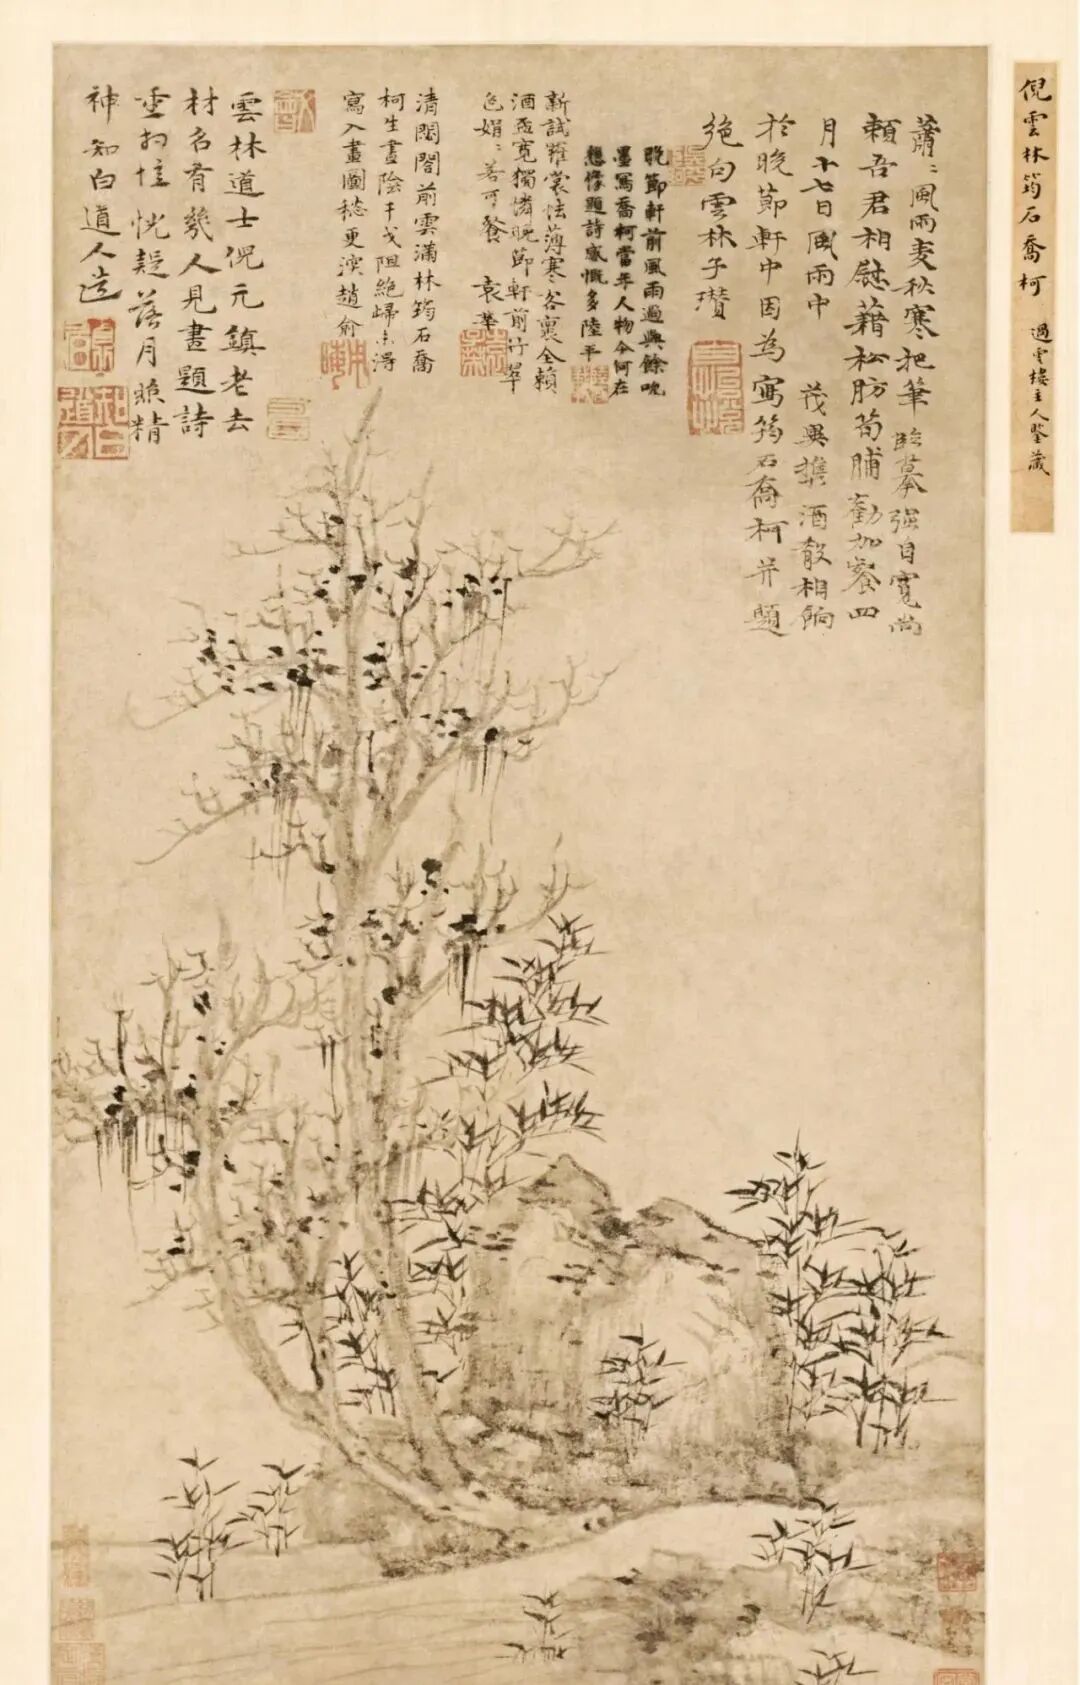 倪雲林筠石喬柯
過雲樓主人鑒藏
蕭〻風雨麦秋寒把筆臨摹強自寬尚
頼吾君相慰藉松肪筍脯勸加餐四
月十七日風雨中茂異携酒殽相餉
於晚節軒中因為寫筠石喬柯并題
絶句雲林子瓚
晚節軒前風雨過興餘吮
墨寫喬柯當年人物今何在
想像題詩感慨多陸平
新試羅裳怯薄寒客裏全頼
酒盃寛獨憐晚節軒前竹翠
色娟〻若可餐 袁華
清閟閣前雲滿林筠石喬
柯生晝陰干戈阻絶歸未得
寫入畫圖愁更深趙俞
雲林道士倪元鎮老去
材名有幾人見畫題詩
重相憶恍疑落月照精
神知白道人造